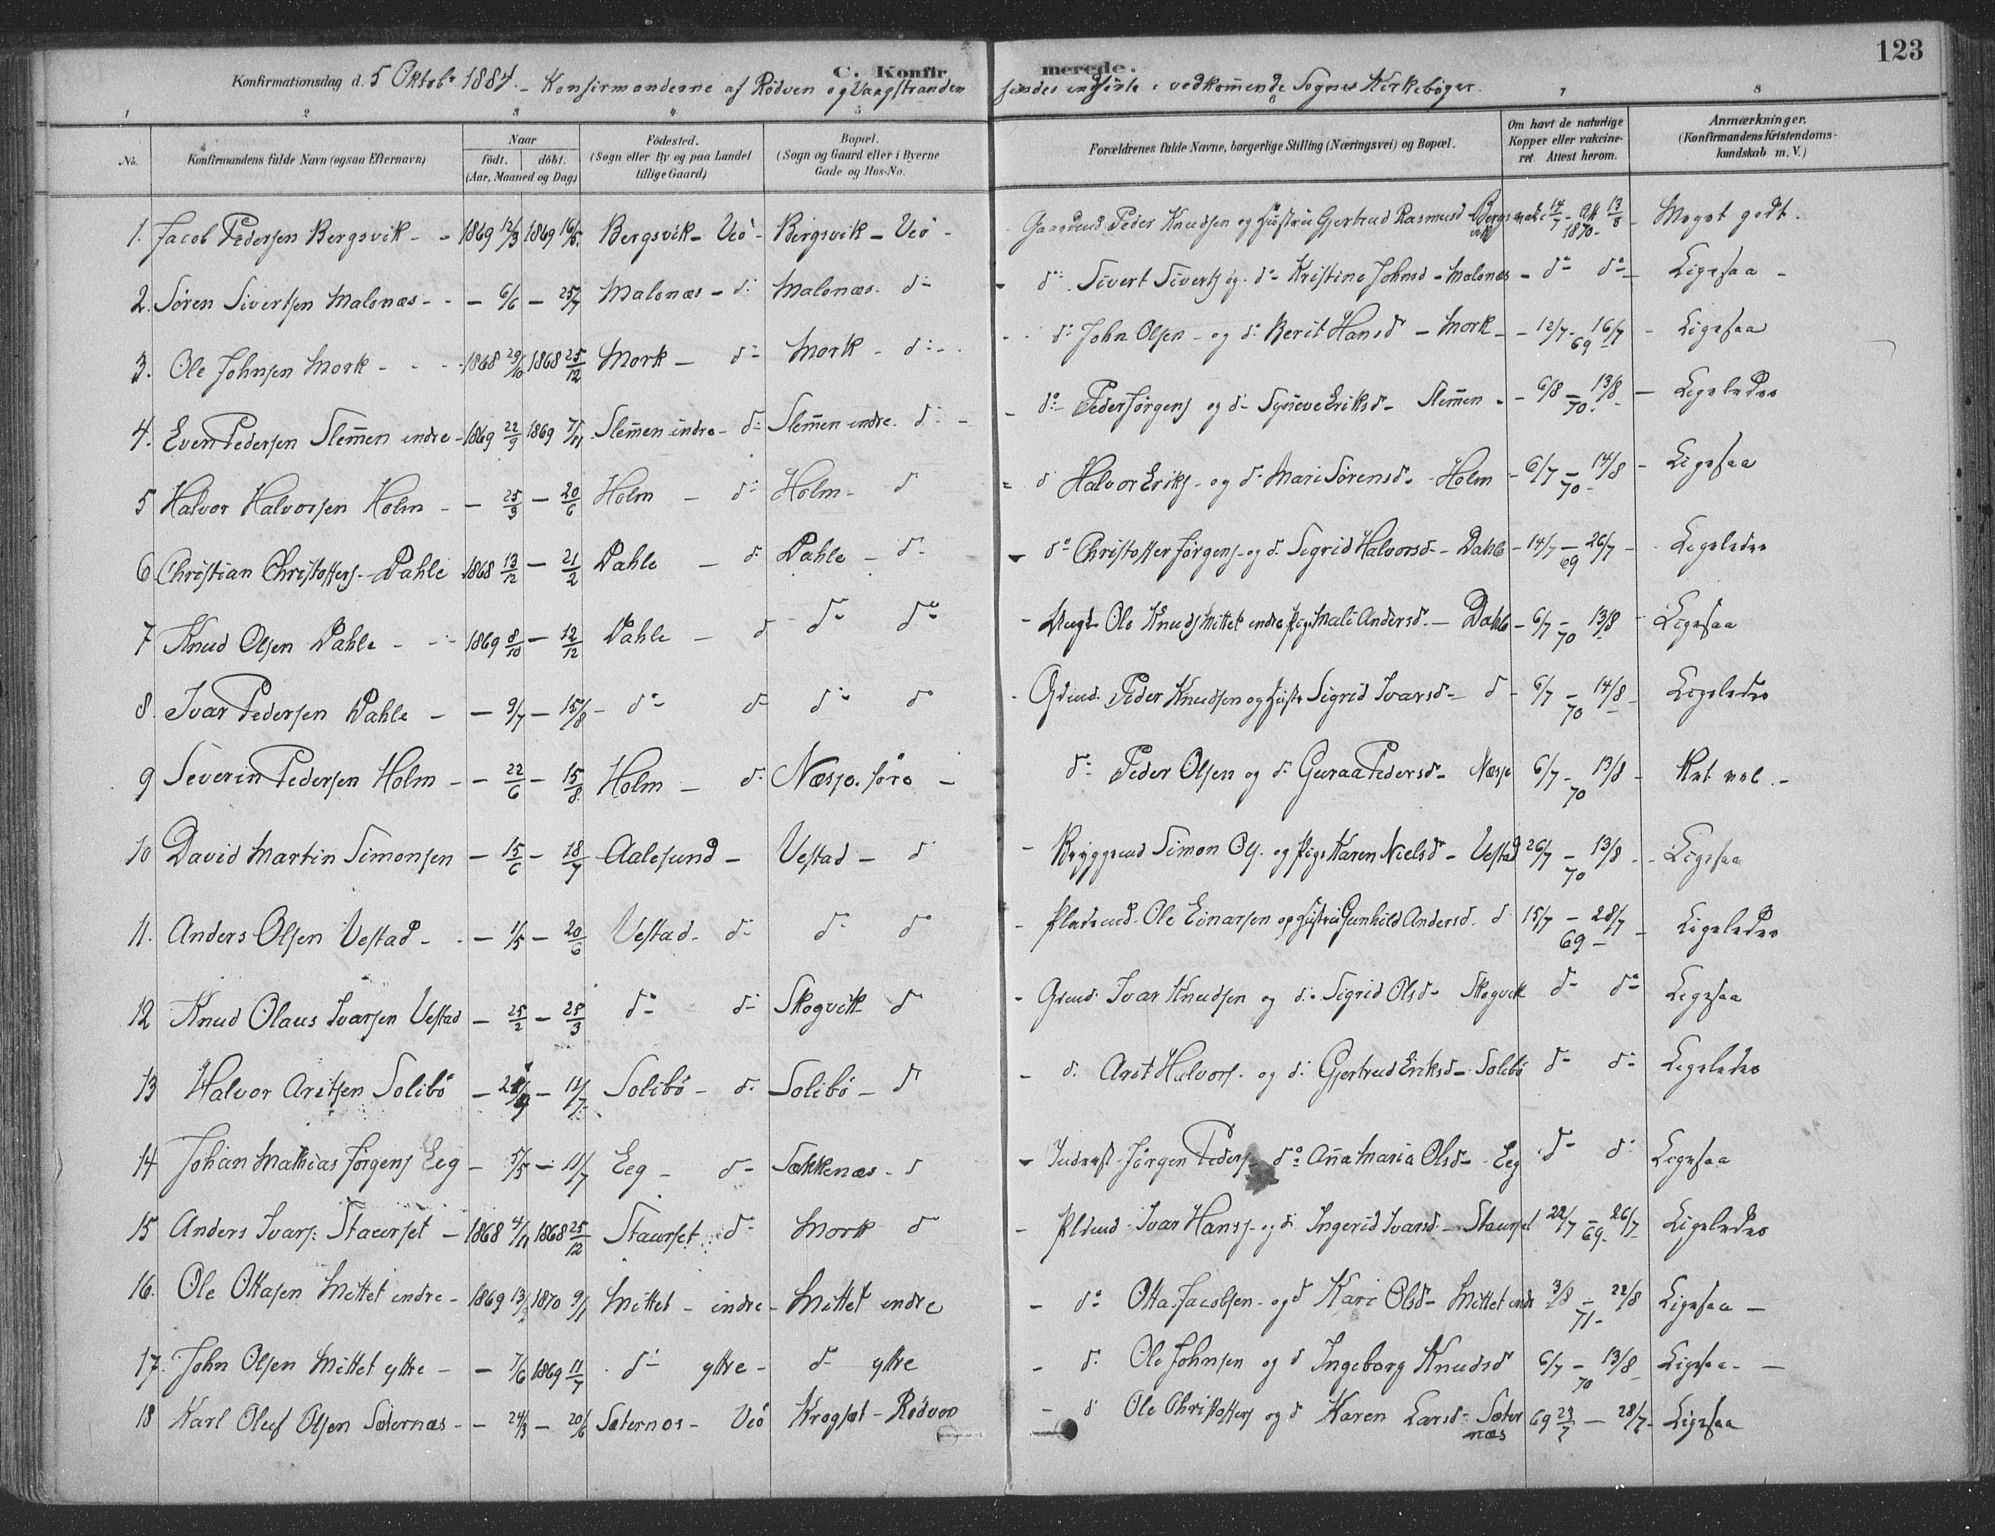 123
C. Konfirmerede.
Konfirmationsdag d. 5 Oktob. 1884. - Konfirmanderne af Rödven og Vaagstranden findes indførte i vedkommende Sognes Kirkebøger.
1 2 3 4 5 6 7 8
No. Konfirmandens fulde Navn (ogsaa Efternavn) Naar födt. döbt. (Aar, Maaned og Dag) Födested. (Sogn eller By og paa Landet tillige Gaard) Bopæl. (Sogn og Gaard eller i Byerne Gade og Hus-No. Forældrenes fulde Navne, borgerlige Stilling (Næringsvei) og Bopæl. Om havt de naturlige Kopper eller vakcineret. Attest herom. Anmærkninger. (Konfirmandens Kristendomskundskab m. V.)
1. Jacob Pedersen Bergsvik - - 1869 12/3 1869 16/5 Bergsvik - Veö - Bergsvik - Veö - Gaardmd Peder Knudsen og Hustru Gjertrud Rasmusd Bergsvik vak: 14/7 - Att 13/8 1870 - Meget godt.
2. Søren Sivertsen Malonæs - - - 6/6 - 25/7 Malonæs - do Malonæs - do - do Sivert Siverts og do Kristine Johnsd - Malonæs - do do - Ligesaa -
3. Ole Johnsen Mork - - - 1868 29/10 1868 25/12 Mork - do Mork - do - - do John Olsen - og do Berit Hansd - Mork - - 12/7 - 16/7 69 - Ligesaa
4. Even Pedersen Slem̄en indre - 1869 22/9 1869 7/11 Slem̄en indre - do Slem̄en indre. do - - do Peder Jørgens og do Synneve Eriksd - Slem̄en - - 6/8 - 13/8 70 - Ligeledes
5 Halvor Halvorsen Holm - - 25/3 - 20/6 Holm - do Holm - d - d Halvor Eriks - og do Mari Sørensd - Holm - 6/7 - 14/8 70 - Ligesaa
6 Christian Christoffers - Dahle 1868 13/12 - 21/2 Dahle - d Dahle - do - do Christoffer Jørgens - og d. Sigrid Halvorsd - Dahle - 14/7 - 26/7 69 - Ligeledes
7 Knud Olsen Dahle - - 1869 8/10 - 12/12 Dahle - d do do - Ungk Ole Knuds Mittet indre Pige Mali Andersd - Dahle - 6/7 - 13/8 70 - Ligesaa
8. Ivar Pedersen Dahle - - 9/7 - 15/8 - do do do do - Grmd. Peder Knudsen og Hustr Sigrid Ivarsd - d - 6/7 - 14/8 70 - Ligeledes
9 Severin Pedersen Holm - - 22/6 - 15/8 Holm - do Næsje - do Peder Olsen og do Guraa Pedersd - Næsje 6/7 - 13/8 70 - Ret vel. -
10 David Martin Simonsen - 15/6 - 18/7 Aalesund - Vestad - d - Simon Ols. og Pige Karen Nielsd - Vestad 26/7 - 13/8 70 - Ligesaa
11. Anders Olsen Vestad - - - 1/5 - 20/6 Vestad - do do do - Pladsmd - Ole Einarsen og Hustru Gunhild Andersd. d 15/7 - 28/7 69 - Ligeledes
12 Knud Olaus Ivarsen Vestad - 25/2 - 25/3 do do Skogvik d - Grmd. Ivar Knudsen og do Sigrid Olsd - Skogvik do do Ligesaa
13 Halvor Aritsen Solibö - - 11/7 Solibö - do Solibö - d - d. Arit Halvors - og do Gjertrud Eriksd - Solibö do do Ligeledes
14 Johan Mathias Jørgens Eeg - 5/5 - 11/7 Eeg - do Sækkenæs - d - Inderst Jørgen Peders do An̄a Maria Olsd - Eeg do do Ligesaa
15 Anders Ivars: Staurset - 1868 4/11 1868 25/12 Staurset do Mork d - Pldmd - Ivar Hanss - og do Ingerid Ivarsd - Staurset 22/7 - 26/7 69 - Ligeledes
16. Ole Ottasen Mittet indre - 1869 1870 9/1 Mittet - indre - Mittet indre - do Otta Jacobsen - og d Kari Olsd - Mittet indr 3/8 - 22/8 71 - Ligesaa -
17. John Olsen Mittet ytre - - 7/6 1869 11/7 do ytre - do ytre - do Ole Johnsen og d Ingeborg Knudsd 6/7 - 13/8 70 Ligesaa - -
18 Karl Oluf Olsen Sæternæs - - 24/3 - 20/6 Sæternæs - Veö Krogset - Rødven - d Ole Christoffers og d Karen Larsd - Sæternæs 69 23/7 - 28/7 - Ligesaa